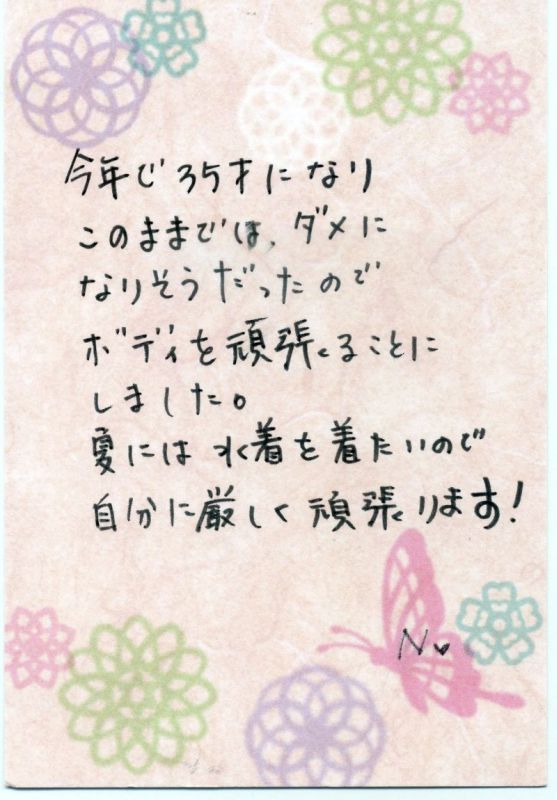 今年で35才になり
このままでは、ダメに
なりそうだったので
ボディを頑張ることに
しました。
夏には水着を着たいので
自分に厳しく頑張ります!
N♥